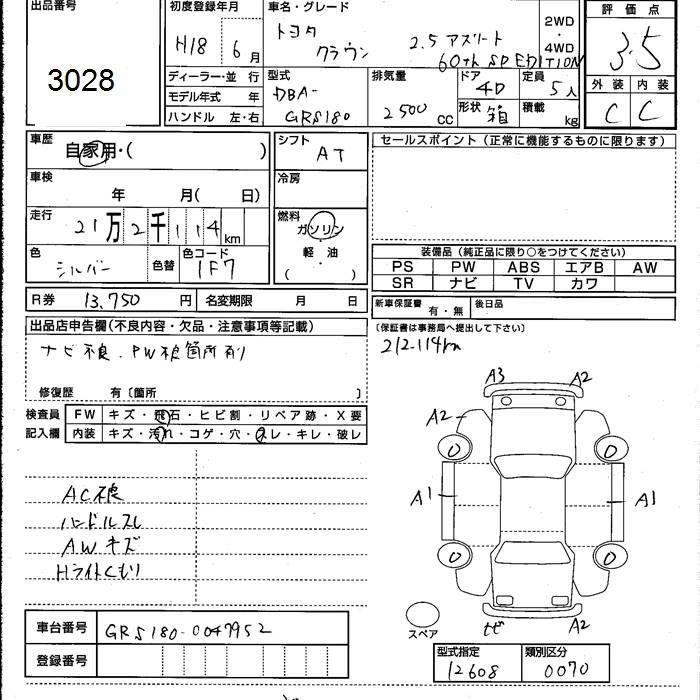 出品番号
3028
初度登録年月
H18 6月
ディーラー・並 行
モデル年式 年
ハンドル 左・右
車名・グレード
トヨタ
クラウン 2.5 アスリート
60th SP EDITION
2WD
・
4WD
型式
DBA-
GRS180
排気量
2500 cc
ドア
4D
形状 箱
定員
5人
積載
kg
評 価 点
3.5
外 装 内 装
C C
車歴
自家用・( )
車検
年 月( 日)
走行
21万2千114km
色
シルバー
色替
色コード
1F7
シフト
AT
冷房
燃料
ガソリン
・
軽 油
( )
セールスポイント (正常に機能するものに限ります)
装備品 (純正品に限り○をつけてください)
PS PW ABS エアB AW
SR ナビ TV カワ
R券 13,750 円 名変期限 月 日
新車保証書 有・無 後日品
(保証書は事務局へ提出して下さい)
212.114km
出品店申告欄(不良内容・欠品・注意事項等記載)
ナビ不良.PW不良箇所有り
修復歴 有〔箇所 〕
検査員
記入欄
FW キズ・飛石・ヒビ割・リペア跡・X要
内装 キズ・汚れ・コゲ・穴・スレ・キレ・破レ
AC不良
ハンドルスレ
AWキズ
Hライトくもり
A3 A2
A2
0 0
A1 A1
0 0
A2
スペア
車台番号 GRS180-0047952
登録番号
型式指定 類別区分
12608 0070